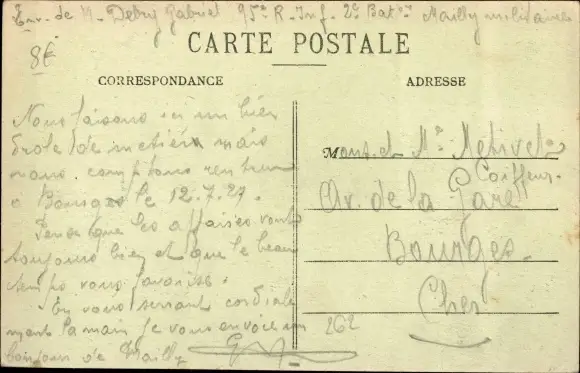 Env. de M. Debry Gabriel 95e R. Inf. 2e Bat on Mailly militaire
8f
CARTE POSTALE
CORRESPONDANCE
ADRESSE
Nous faisons ici un bien
drole de metier mais
nous comptons rentrer
a Bourges le 12.7.27.
Pense que les affaires vont
toujours bien et que le beau
temps vous favorise.
En vous serrant cordiale
ment la main je vous envoie un
bonjour de Mailly
Mons. et Me Metivet
Coiffeur.
Av. de la Gare
Bourges.
Cher
262